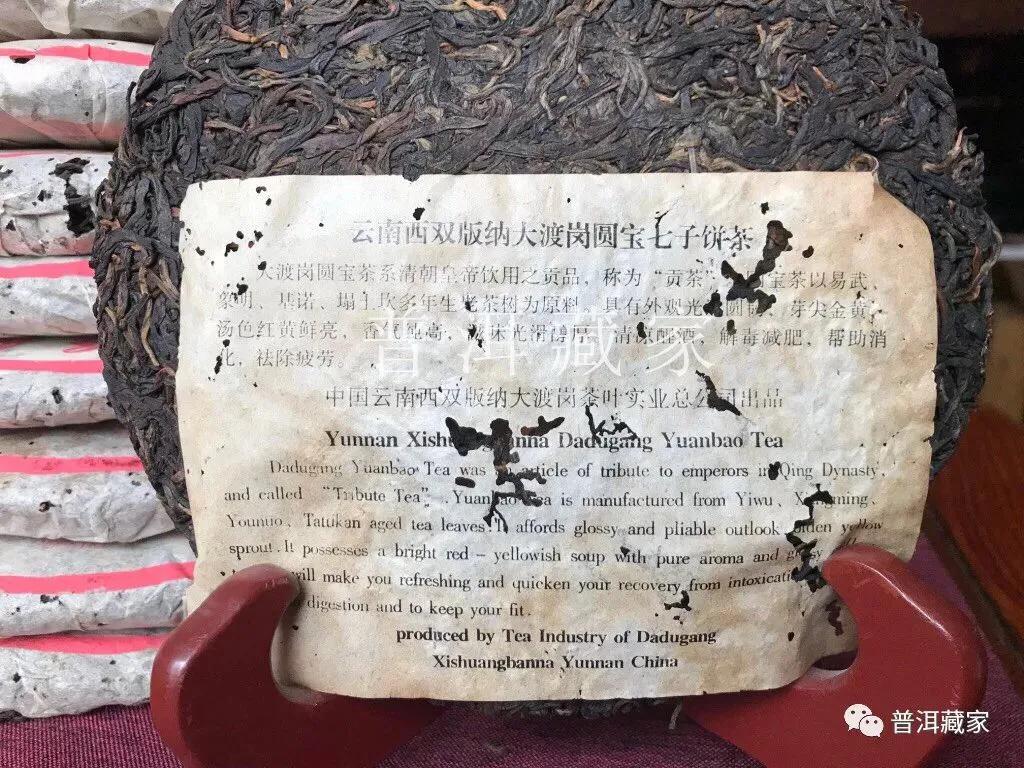 云南西双版纳大渡岗圆宝七子饼茶
大渡岗圆宝茶系清朝皇帝饮用之贡品，称为“贡茶” 宝茶以易武、
象明、基诺、塌 坎多年生老茶树为原料，具有外观光 圆 、芽尖金黄，
汤色红黄鲜亮，香气纯高， 光滑 清凉醒酒，解毒减肥，帮助消
化，祛除疲劳。
普洱藏家
中国云南西双版纳大渡岗茶叶实业总公司出品
Yunnan Dadugang Yuanbao Tea
Dadugang Yuanbao Tea was article of tribute to emperors in Qing Dynasty,
and called “Tribute Tea”. Yuanbao is manufactured from Yiwu、
Younuo、Tatukan aged tea leaves. It affords glossy and pliable outlook yellow
sprout. It possesses a bright red-yellowish soup with pure aroma and
will make you refreshing and quicken your recovery from
digestion and to keep your fit.
produced by Tea Industry of Dadugang
Xishuangbanna Yunnan China
普洱藏家